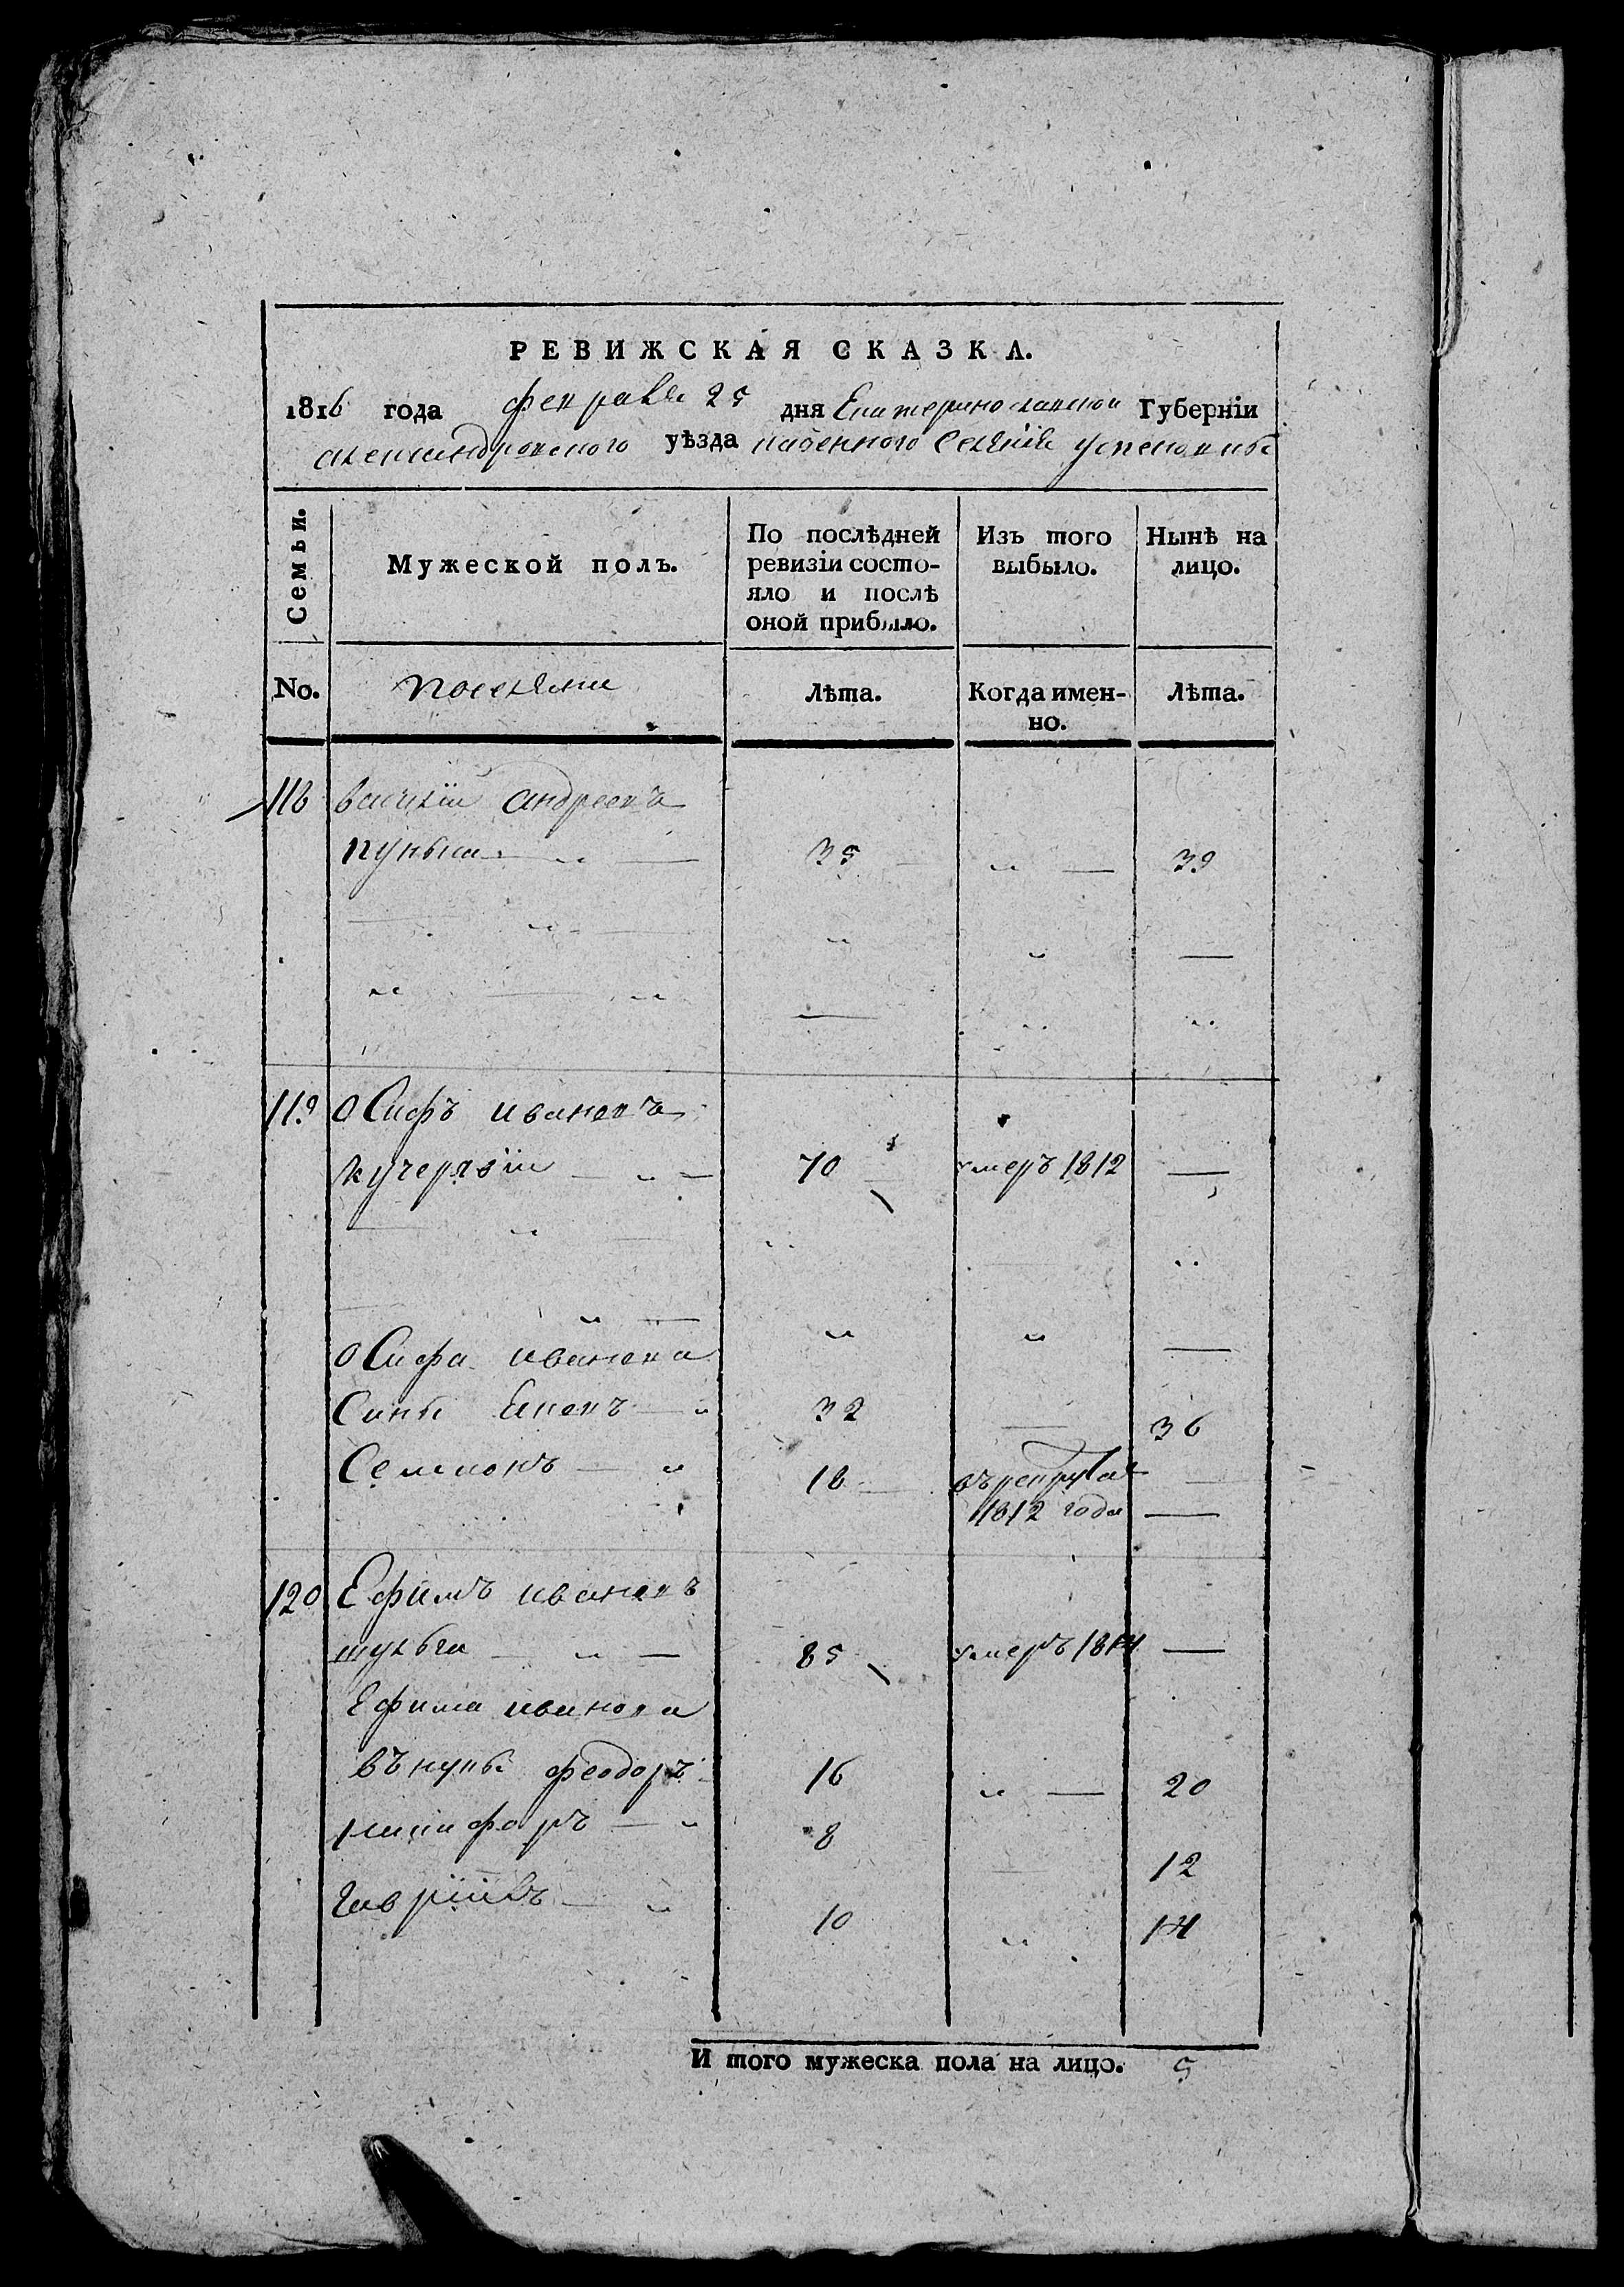 РЕВИЖСКАЯ СКАЗКА.
1816 года февраля 25 дня Екатеринославской Губерніи
александровского уѣзда казенного селенія успеновки
Семьи.
Мужеской полъ.
По послѣдней ревизіи состо-
яло и послѣ
оной прибыло.
Изъ того
выбыло.
Нынѣ на
лицо.
No.
поселяни
Лѣта.
Когда имен-
но.
Лѣта.
118 василіи андреевъ
35 39
119 Осифъ ивановъ
кучерявіи 70 умеръ 1812
Осифа иванова
Сины 32 36
Семионъ 18 въ рекрута
1812 года
120 Ефимъ ивановъ
шульга 85 умеръ 1814
Ефима иванова
внуки феодоръ 16 20
никифоръ 8 12
гавріилъ 10 14
И того мужеска пола на лицо. 5